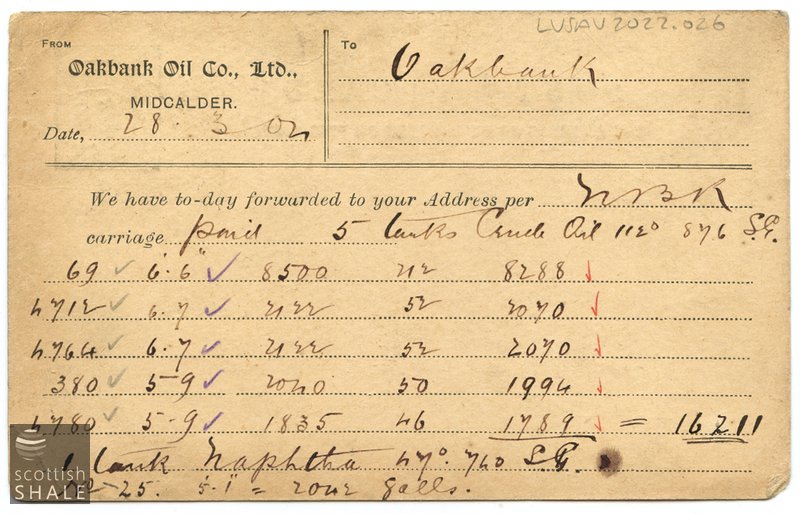 LVSAV2022.026
FROM
Oakbank Oil Co., Ltd.,
MIDCALDER.
Date, 28 . 3 02
To
Oakbank
We have to-day forwarded to your Address per NBR
carriage paid 5 tanks Crude Oil 112° 876 S.G.
69 ✓ 6'.6" ✓ 8500 212 8288
4712 ✓ 6.7 ✓ 2122 52 2070
4764 ✓ 6.7 ✓ 2122 52 2070
380 ✓ 5-9 ✓ 50 1994
4780 ✓ 5-9 ✓ 1835 46 1789 = 16211
1 tank Naphtha 47° 740 S.G.
25. 5'.1" = 2042 galls.
scottish
SHALE